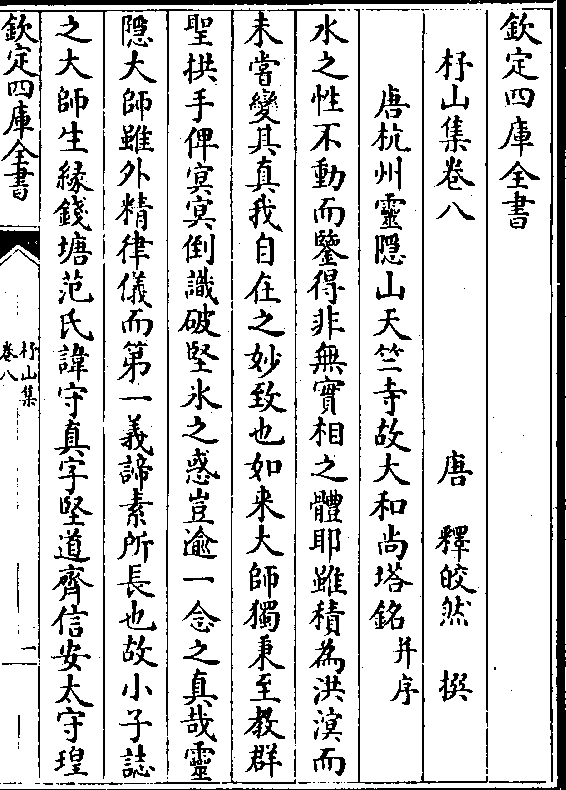 欽定四庫全書
杼山集卷八
唐 釋皎然 撰
唐杭州靈隱山天竺寺故大和尚塔銘并序
水之性不動而鑒得非無實相之體耶雖積為洪溟而
未嘗變其真我自在之妙致也如来大師獨秉至教群
聖拱手俾㝠㝠倒識破堅氷之惑豈逾一念之真哉靈
隱大師雖外精律儀而第一義諦素所長也故小子誌
之大師生緣錢塘范氏諱守真字堅道齊信安太守瑝
欽定四庫全書
杼山集
卷八
二